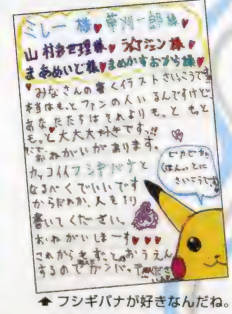 ミレー様♥草刈一郎様♥
山村あせ理様♥ラオケミン様♥
まあめいど様♥まめかすおどら様♥
みなさんの書くイラストさいこうです
本当はもっとファンの人いるんですけど
あなたたちはそれよりもっともっと
もっと大大大好きです。!!
おねがいがあります。
カッコイイフシギバナと
なるべくでいいです
からだれか1人もり
書いてください。
おねがいしまーす♥♥♥
これからもずっとおうえん
するのでガンバってください
ピカピカ
はんっとに
さいこうです
⬆ フシギバナが好きなんだね。